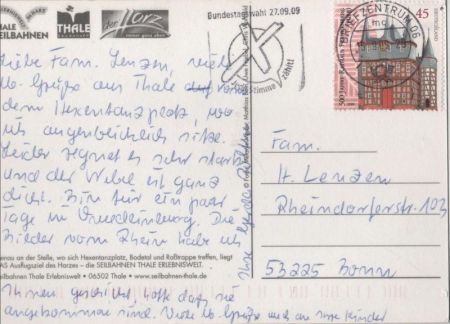 SEILBAHNEN
THALE
der Harz
Liebe Fam. Lenzen, viele
lb. Grüße aus Thale auf
dem Hexentanzplatz, wo
ich augenblicklich sitze.
Leider regnet es sehr stark
und der Nebel ist ganz
dicht. Bin für ein paar
Tage in Quedlinburg. Die
Bilder vom Rhein habe ich
Ihnen geschickt, hoffe daß sie
angekommen sind. Viele lb. Grüße auch an Ihre Kinder
genau an der Stelle, wo sich Hexentanzplatz, Bodetal und Roßtrappe treffen, liegt
DAS Ausflugsziel des Harzes – die SEILBAHNEN THALE ERLEBNISWELT.
Seilbahnen Thale Erlebniswelt • 06502 Thale • www.seilbahnen-thale.de
Bundestagswahl 27.09.09
Stimme zählt!
BRIEFZENTRUM 06
45
Fam.
H. Lenzen
Rheindorferstr. 103
53225 Bonn